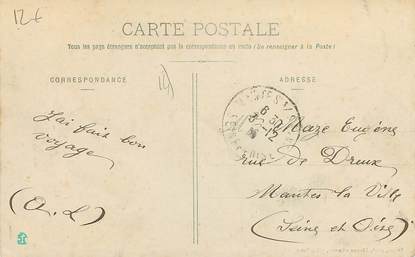 12€
CARTE POSTALE
Tous les pays étrangers n'acceptent pas la correspondance au recto (Se renseigner à la Poste)
CORRESPONDANCE
ADRESSE
J'ai fait bon
voyage
(A.L)
Maze Eugène
rue de Dreux
Mantes la Ville
(Seine et Oise)
6 30